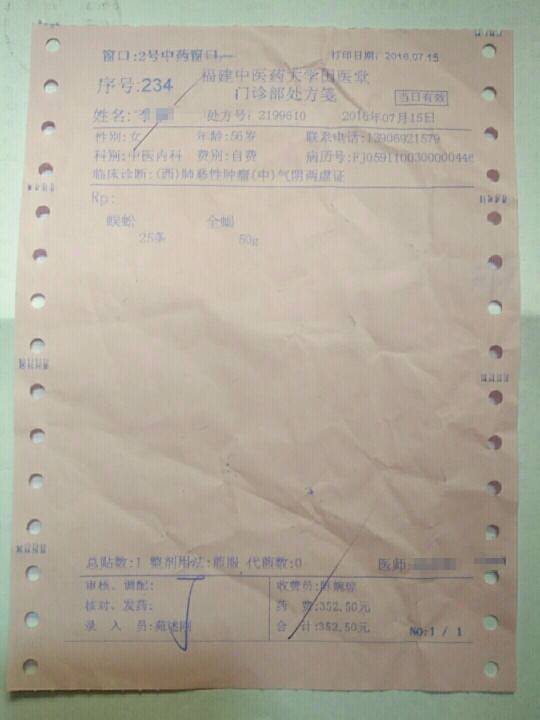 窗口:2号中药窗口 打印日期: 2016.07.15
序号:234 福建中医药大学国医堂
门诊部处方笺 当日有效
姓名: 季 处方号: 2199610 2016年07月15日
性别: 女 年龄:56岁 联系电话:13906921579
科别:中医内科 费别:自费 病历号:FJ0591100300000446
临床诊断:(西)肺恶性肿瘤(中)气阴两虚证
Rp:
蜈蚣 全蝎
25条 50g
总贴数:1 整剂用法:煎服 代煎数:0 医师:
审核、调配: 收费员:陈婉琼
核对、发药: 药 费:352.50元
录 入 员: 合 计:352.50元 NO:1 / 1